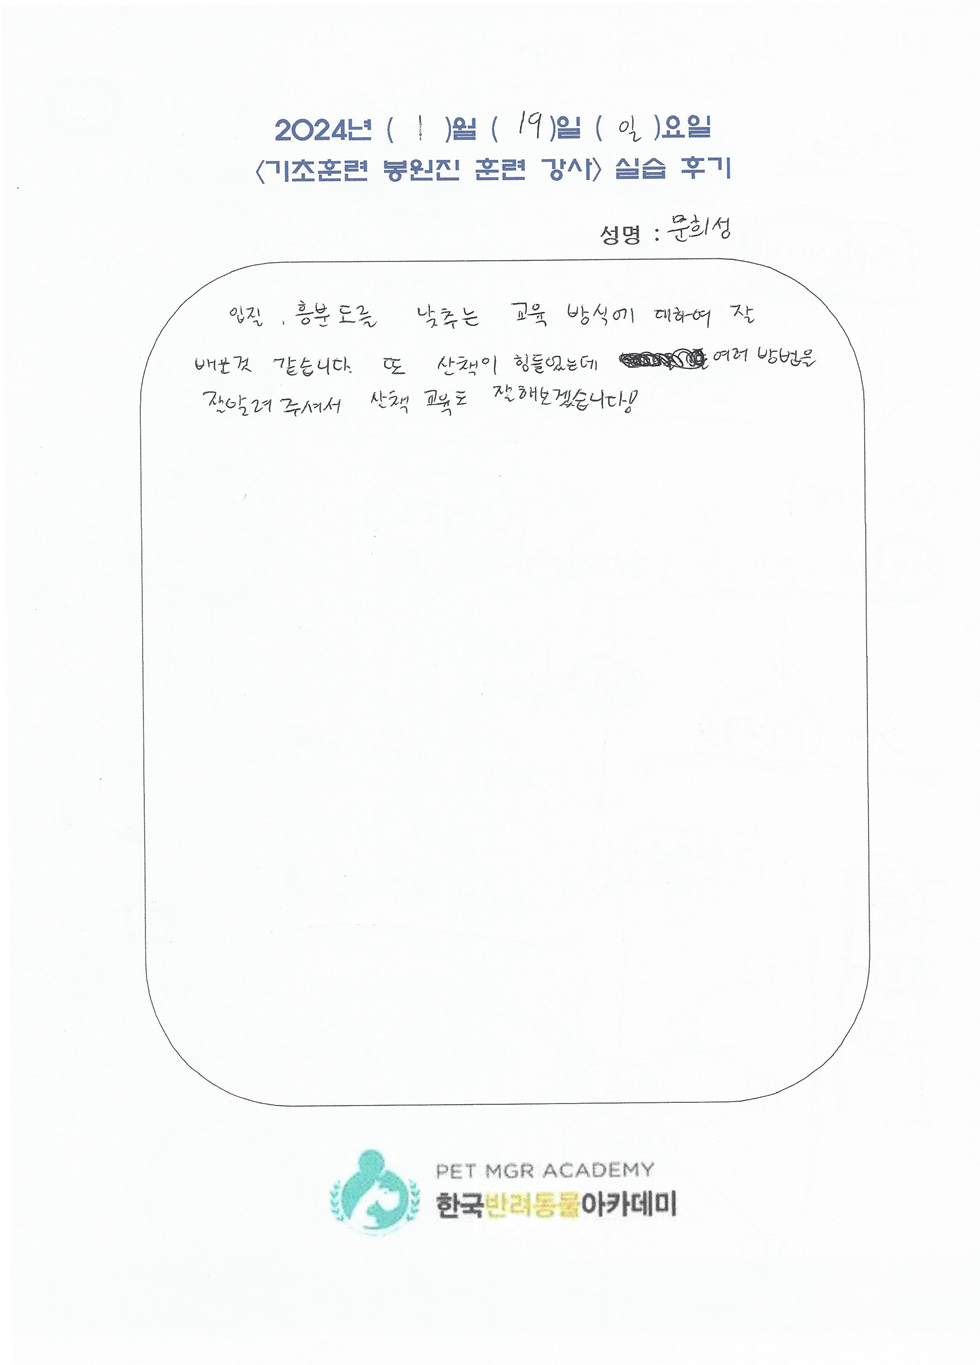 2024년 ( 1 )월 ( 19 )일 ( 일 )요일
<기초훈련 봉원진 훈련 강사> 실습 후기
성명 : 문희성
입질, 흥분도를 낮추는 교육 방식에 대하여 잘
배운것 같습니다. 또 산책이 힘들었는데 여러 방법을
잘알려 주셔서 산책 교육도 잘해보겠습니다!
PET MGR ACADEMY
한국반려동물아카데미